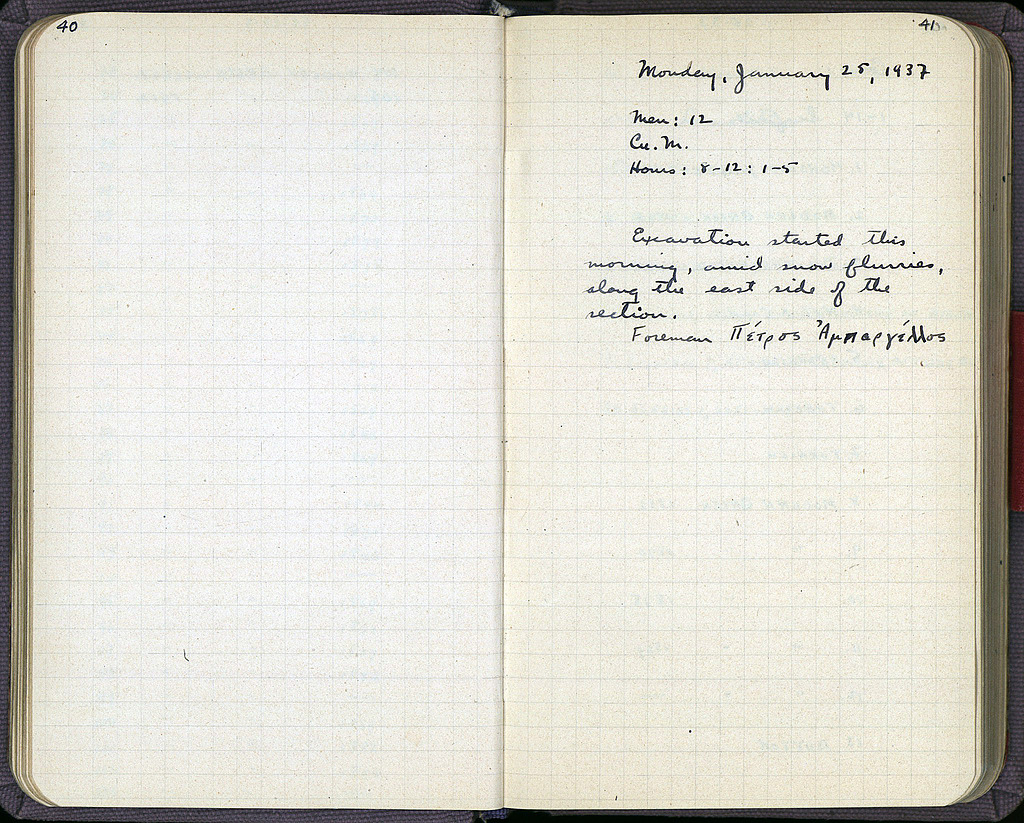 40
41
Monday, January 25, 1937
Men: 12
Cu. M.
Hours: 8-12: 1-5
Excavation started this
morning, amid snow flurries,
along the east side of the
section.
Foreman Πέτρος Ἀμπαργέλλος